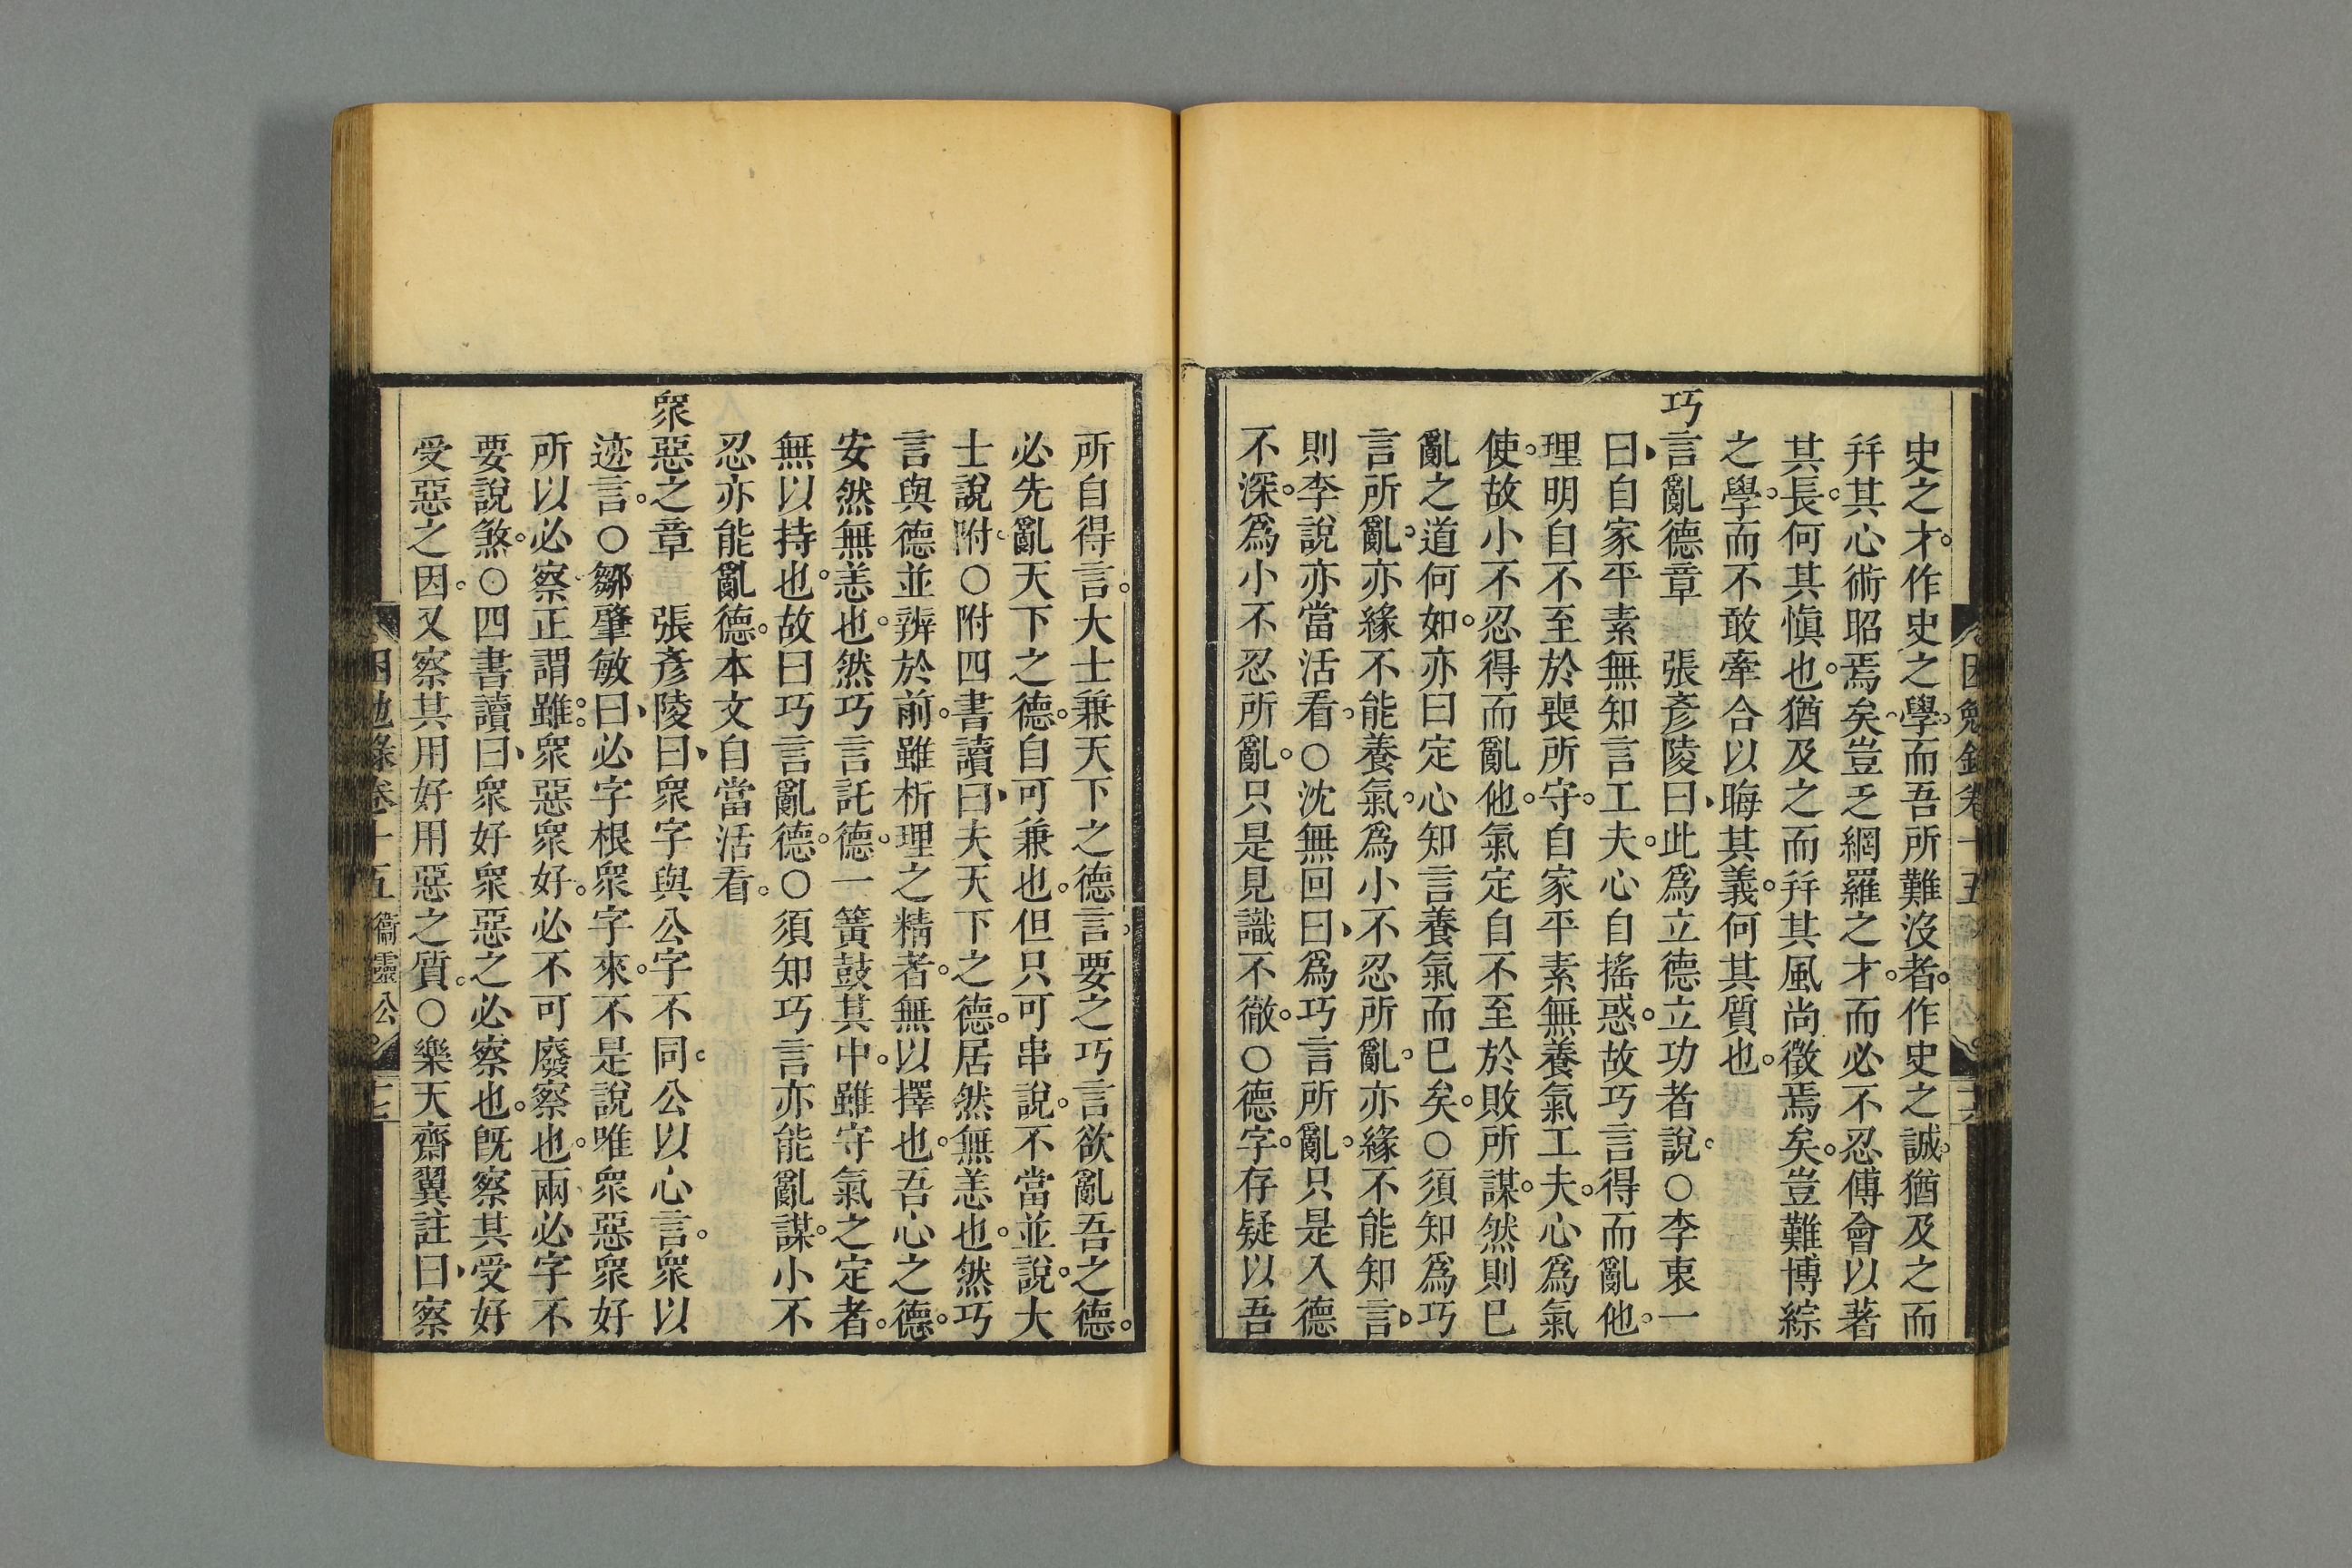 史之才。作史之學。而吾所難沒者。作史之誠。猶及之而
幷其心術昭焉矣。豈乏網羅之才。而必不忍傅會以著
其長。何其愼也。猶及之而幷其風尚徵焉矣。豈難博綜
之學。而不敢牽合以晦其義。何其質也。
巧言亂德章　張彥陵曰、此爲立德立功者說。○李衷一
曰、自家平素無知言工夫。心自搖惑。故巧言得而亂他。
理明自不至於喪所守。自家平素無養氣工夫。心爲氣
使。故小不忍得而亂他。氣定自不至於敗所謀。然則已
亂之道何如。亦曰定心知言養氣而已矣。○須知爲巧
言所亂。亦緣不能養氣。爲小不忍所亂。亦緣不能知言、
則李說亦當活看。○沈無回曰、爲巧言所亂。只是入德
不深。爲小不忍所亂。只是見識不徹。○德字。存疑以吾
所自得言。大士兼天下之德言。要之巧言欲亂吾之德。
必先亂天下之德。自可兼也。但只可串說。不當並說。大
士說附。○附四書讀曰、夫天下之德。居然無恙也。然巧
言與德並辨於前。雖析理之精者。無以擇也。吾心之德。
安然無恙也。然巧言託德。一簧鼓其中。雖守氣之定者。
無以持也。故曰巧言亂德。○須知巧言亦能亂謀。小不
忍亦能亂德。本文自當活看。
眾惡之章　張彥陵曰、眾字與公字不同。公以心言。眾以
迹言。○鄒肇敏曰、必字根眾字來。不是說唯眾惡眾好
所以必察。正謂雖眾惡眾好。必不可廢察也。兩必字不
要說煞。○四書讀曰、眾好眾惡之必察也。旣察其受好
受惡之因。又察其用好用惡之質。○樂天齋翼註曰、察
困勉錄卷十五 衞靈公 十七